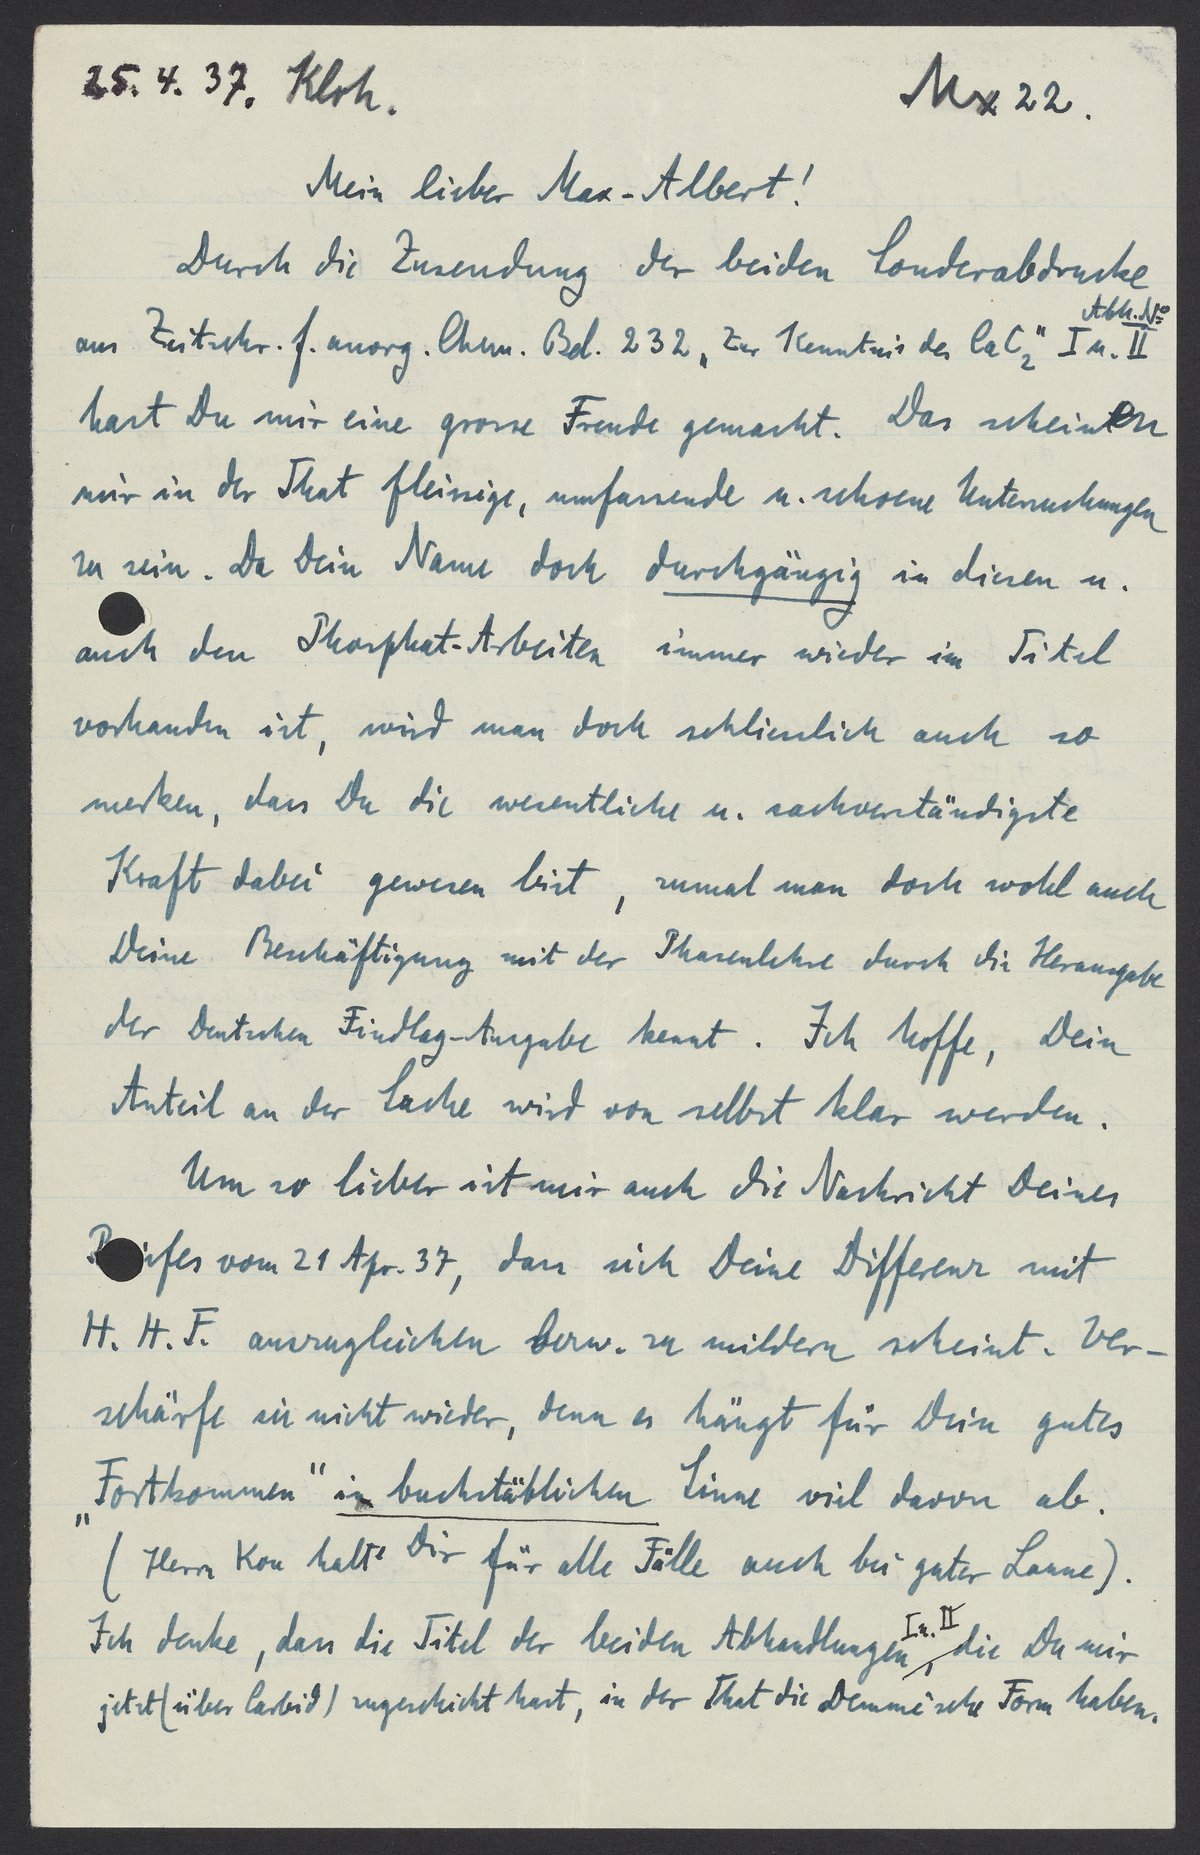 25. 4. 37. Kloh.
Mx 22.
Mein lieber Max-Albert!
Durch die Zusendung der beiden Sonderabdrucke
Abh. No
aus Zeitschr. f. anorg. Chem. Bd. 232 „Zur Kenntnis des CaC₂" I u. II
hast Du mir eine grosse Freude gemacht. Das scheinen
mir in der That fleissige, umfassende u. schoene Untersuchungen
zu sein. Da Dein Name doch durchgängig in diesen u.
auch den Phosphat-Arbeiten immer wieder im Titel
vorhanden ist, wird man doch schliesslich auch so
merken, dass Du die wesentliche u. sachverständigste
Kraft dabei gewesen bist, zumal man doch wohl auch
Deine Beschäftigung mit der Phasenlehre durch die Herausgabe
der Deutschen Findlay-Ausgabe kennt. Ich hoffe, Dein
Anteil an der Sache wird von selbst klar werden.
Um so lieber ist mir auch die Nachricht Deines
Briefes vom 21 Apr. 37, dass sich Deine Differenz mit
H. H. F. auszugleichen bezw. zu mildern scheint. Ver-
schärfe sie nicht wieder, denn es hängt für Dein gutes
„Fortkommen" in buchstäblichen Sinne viel davon ab.
(Herrn Kon halte Dir für alle Fälle auch bei guter Laune).
Ich denke, dass die Titel der beiden Abhandlungen I u. II, die Du mir
jetzt (über Carbid) zugeschickt hast, in der That die Demme'sche Form haben.